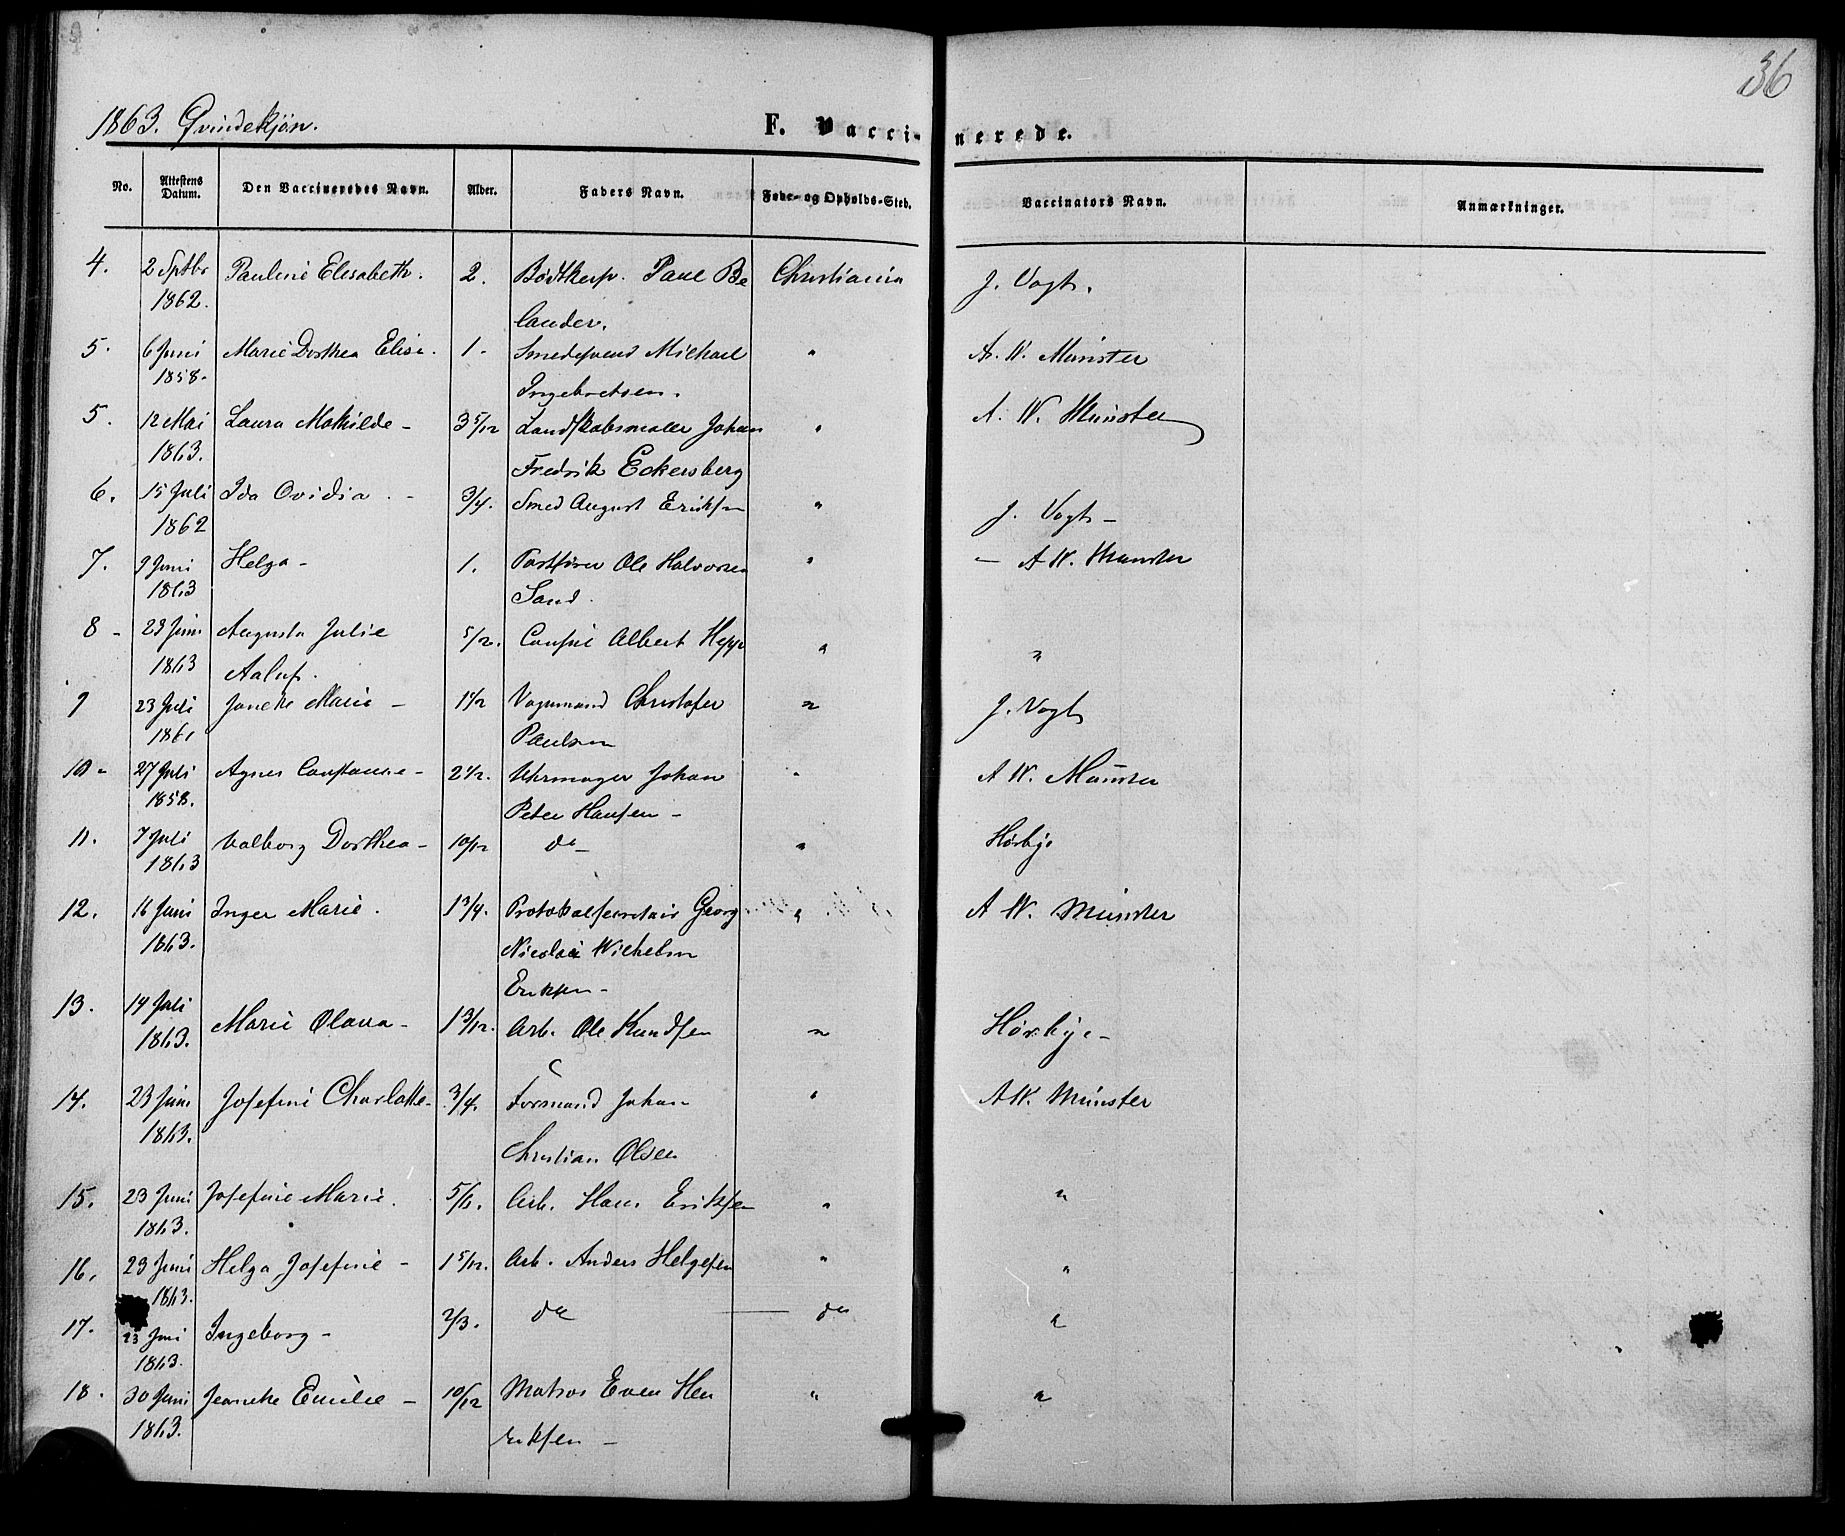 36
1863. Qvindekjön.
F. Vacci-
nerede.
No. Attestens Datum. Den Vaccineredes Navn. Alder. Faders Navn. Føde- og Opholds-Sted. Vaccinators Navn. Anmærkninger.
4. 2 Sptbr Pauline Elisabeth. 2. Paul Be Christiania J. Vogt.
1862. lander.
5. 6 Juni Marie Dorthea Elise. 1. Smedesvend Michael " A. W. Münster
1858. Ingebretsen.
5. 12 Mai Laura Mathilde - 3 5/12 Landskabsmaler Johan " A. W. Münster
1863. Fredrik Eckersberg
6. 15 Juli Ida Ovidia. - 3/4. Smed August Eriksen " J. Vogt -
1862
7. 9 Juni Helga - 1. Ole Halvorsen " - A W. Münster
1863 Sand.
8 - 23 Juni Augusta Julie 5/12. Consul Albert Hepp " "
1863
9 23 Juli Marie - 1 1/2 Vognmand Christofer " J. Vogt
1861 Paulsen
10 - 27 Juli Agnes Constance - 2 1/2. Uhrmager Johan " A W. Münster
1858. Peter Hansen -
11. 7 Juli Valborg Dorthea - 10/12 do - " Hørbye
1863
12. 16 Juni Inger Marie. 1 3/4. Protokolsecretair Georg " A W. Münster
1863. Nicolai Wilhelm
Eriksen -
13. 14 Juli Marie Olava - 1 3/12. Arb. Ole Knudsen " Hørbye -
1863.
14. 23 Juni Josefine Charlotte - 3/4. Formand Johan " A W. Münster
1863. Christian Olsen
15. 23 Juni Josefine Marie. 5/6. Arb. Hans Eriksen " "
1863.
16. 23 Juni Helga Josefine - 1 5/12. Arb. Anders Helgesen " "
1863.
17. 23 Juni Ingeborg - 2/3. do do "
1863.
18. 30 Juni Emilie - 10/12 Matros Even Hen " "
1863. riksen -